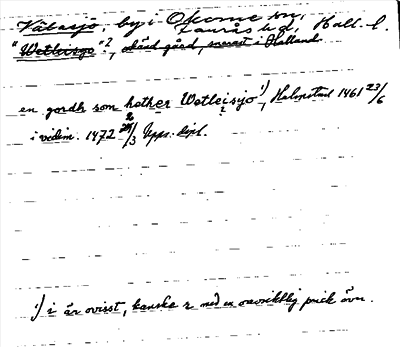 Vätasjö, by i Okome sn,
Faurås hd, Hall. l.
"Wetleisjo"?, okänd gård, snarast i Halland
en gordh som hether Wetleisjo ¹), Halmstad 1461 23/6
i vidim. 1472 2/3 Upps. dipl.
¹) i är ovisst, kanske r med en oavsiktlig prick över.